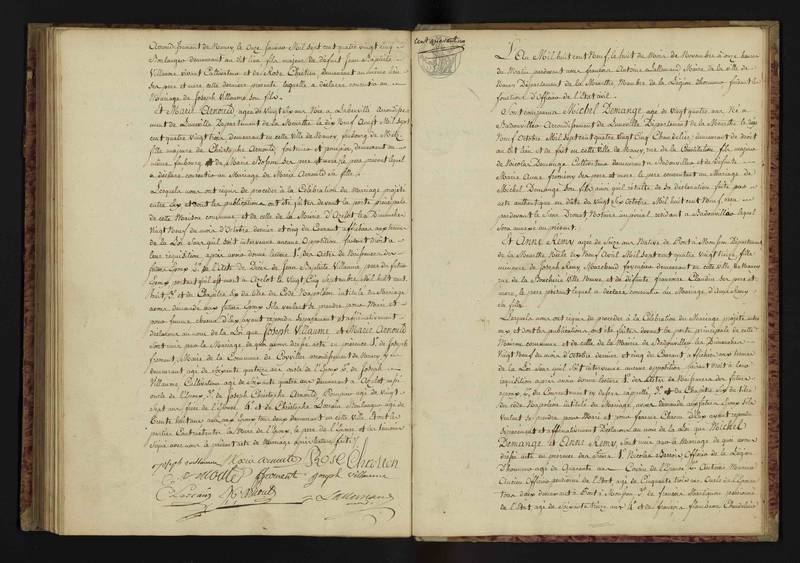 Arrondissement de Nancy, le onze Janvier Mil sept cent quatre vingt cinq
Boulanger demeurant au dit lieu fils majeur de défunt Jean Baptiste
Villaume vivant Cultivateur et de Rose Chrétien demeurant au même lieu
ses père et mère cette dernière présente laquelle a déclaré consentir au
Mariage de Joseph Villaume son fils.
Et Marie Arnould âgée de vingt six ans Née à Lunéville Arrondisse
ment de Lunéville Département de la Meurthe le dix Neuf Août Mil sept
cent quatre vingt trois, demeurant en cette Ville de Nancy, faubourg
fille majeure de Christophe Arnould, et pompier, demeurant au
même faubourg et de Marie ses père et mère, le père présent lequel
a déclaré consentir au Mariage de Marie Arnould sa fille.
Lesquels nous ont requis de procéder à la Célébration du Mariage projeté
entre eux et dont les publications ont été faites devant la porte principale
de cette Maison commune et de celle de la Mairie d'Azelot les Dimanches
Vingt Neuf du mois d'Octobre dernier et cinq du Courant affichées aux termes
de la Loi sans qu'il soit intervenu aucune opposition faisant droit à
leur réquisition après avoir donné lecture 1° des Actes de Naissance des
futurs Epoux 2° de l'Acte de Décès de Jean Baptiste Villaume, père du futur
Epoux portant qu'il est mort à Azelot le Vingt Cinq Septembre Mil huit cent
huit 3° et du Chapitre six du titre du Code Napoléon intitulé du Mariage
avons demandé aux futurs Epoux s'ils veulent se prendre pour Mari et
pour femme chacun d'eux ayant répondu séparément et affirmativement
déclarons au nom de la Loi que Joseph Villaume et Marie Arnould
sont unis par le Mariage de quoi avons dressé acte en présence 1° de Joseph
froment, Maire de la Commune de Coyviller arrondissement de Nancy y
demeurant âgé de soixante quatorze ans de l'Epoux 2° de Joseph
Villaume Cultivateur âgé de soixante quatre ans demeurant à Azelot
de l'Epoux 3° de Joseph Christophe Arnould, Pompier âgé de vingt
sept ans frère de l'Epouse 4° et de Christophe Lorrain Boulanger âgé de
trente huit ans tous deux demeurant en cette Ville. Et ont les
parties Contractantes la Mère de l'Epoux, le père de l'Epouse et les témoins
signé avec nous le présent acte de Mariage après lecture faite
joseph villaume Marie arnould Rose Chretien
froment joseph villaume
C Lorrain Lallemand
cent quarante
L'An Mil huit cent Neuf, le huit du Mois de Novembre à onze heures
du Matin pardevant nous françois Antoine Lallemand Maire de la Ville de
Nancy Département de la Meurthe, Membre de la Légion d'honneur faisant les
fonctions d'Officier de l'Etat civil.
Sont comparus Michel Demange âgé de Vingt quatre ans Né à
Badonviller Arrondissement de Lunéville Département de la Meurthe le dix
Neuf Octobre Mil sept cent quatre Vingt Cinq Chandelier demeurant de droit
au dit lieu et de fait en cette ville de Nancy, rue de la Constitution fils majeur
de Nicolas Demange Cultivateur demeurant à Badonviller et de défunte
Marie Anne ses père et mère, le père consentant au Mariage de
Michel Demange son fils ainsi qu'il résulte de sa déclaration faite par
acte authentique en date du vingt six Octobre Mil huit cent Neuf, reçu
pardevant le Sieur Notaire impérial résidant à Badonviller lequel
sera annexé au présent.
Et Anne Remy âgée de Seize ans Native de Pont à Mousson Département
de la Meurthe Née le dix Neuf Avril Mil sept cent quatre Vingt treize, fille
mineure de Joseph Remy Marchand forain demeurant en cette Ville de Nancy
rue de la Boucherie Ville Neuve et de défunte francoise Claudin ses père et
mère, le père présent lequel a déclaré consentir au Mariage d'Anne Remy
sa fille.
Lesquels nous ont requis de procéder à la Célébration du Mariage projeté entre
eux et dont les publications ont été faites devant la porte principale de cette
Maison commune et de celle de la Mairie de Badonviller les Dimanches
Vingt Neuf du mois d'Octobre dernier et cinq du Courant affichées aux termes
de la Loi sans qu'il soit intervenu aucune opposition faisant droit à leur
réquisition après avoir donné lecture 1° des Actes de Naissance des futurs
Epoux 2° du Consentement ci-dessus rappelé 3° et du Chapitre six du titre
du Code Napoléon intitulé du Mariage avons demandé aux futurs Epoux s'ils
veulent se prendre pour Mari et pour femme Chacun d'eux ayant répondu
séparément et affirmativement Déclarons au nom de la Loi que Michel
Demange et Anne Remy, sont unis par le Mariage de quoi avons
dressé acte en présence des Sieurs 1° Nicolas Officier de la Légion
d'honneur âgé de quarante ans Cousin de l'Epouse 2° Antoine
Ancien Officier pensionné de l'Etat, âgé de Cinquante trois ans Oncle de l'Epouse
tous deux demeurant à Pont à Mousson 3° de françois pensionné
de l'Etat, âgé de soixante treize ans 4° et de françois Chandelier